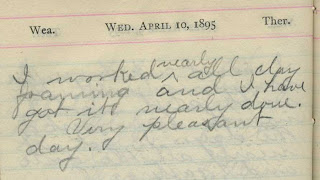 Wea. WED. APRIL 10, 1895 Ther.
I worked ^nearly all day
framing and I have
got it nearly done.
Very pleasant
day.